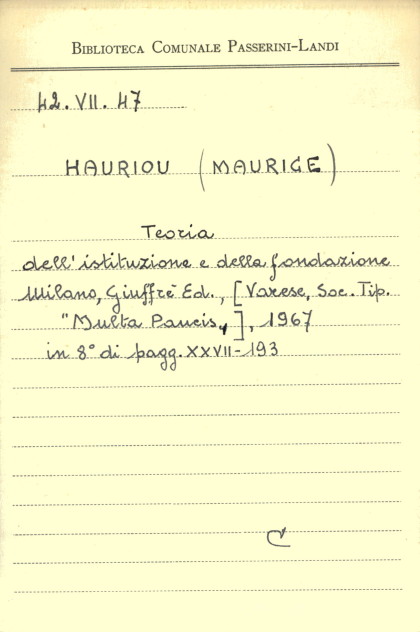 BIBLIOTECA COMUNALE PASSERINI-LANDI
42.VII.47
HAURIOU (MAURICE)
Teoria
dell'istituzione e della fondazione
Milano, Giuffrè Ed., [Varese, Soc. Tip.
"Multa Paucis"], 1967
in 8° di pagg. XXVII-193
C